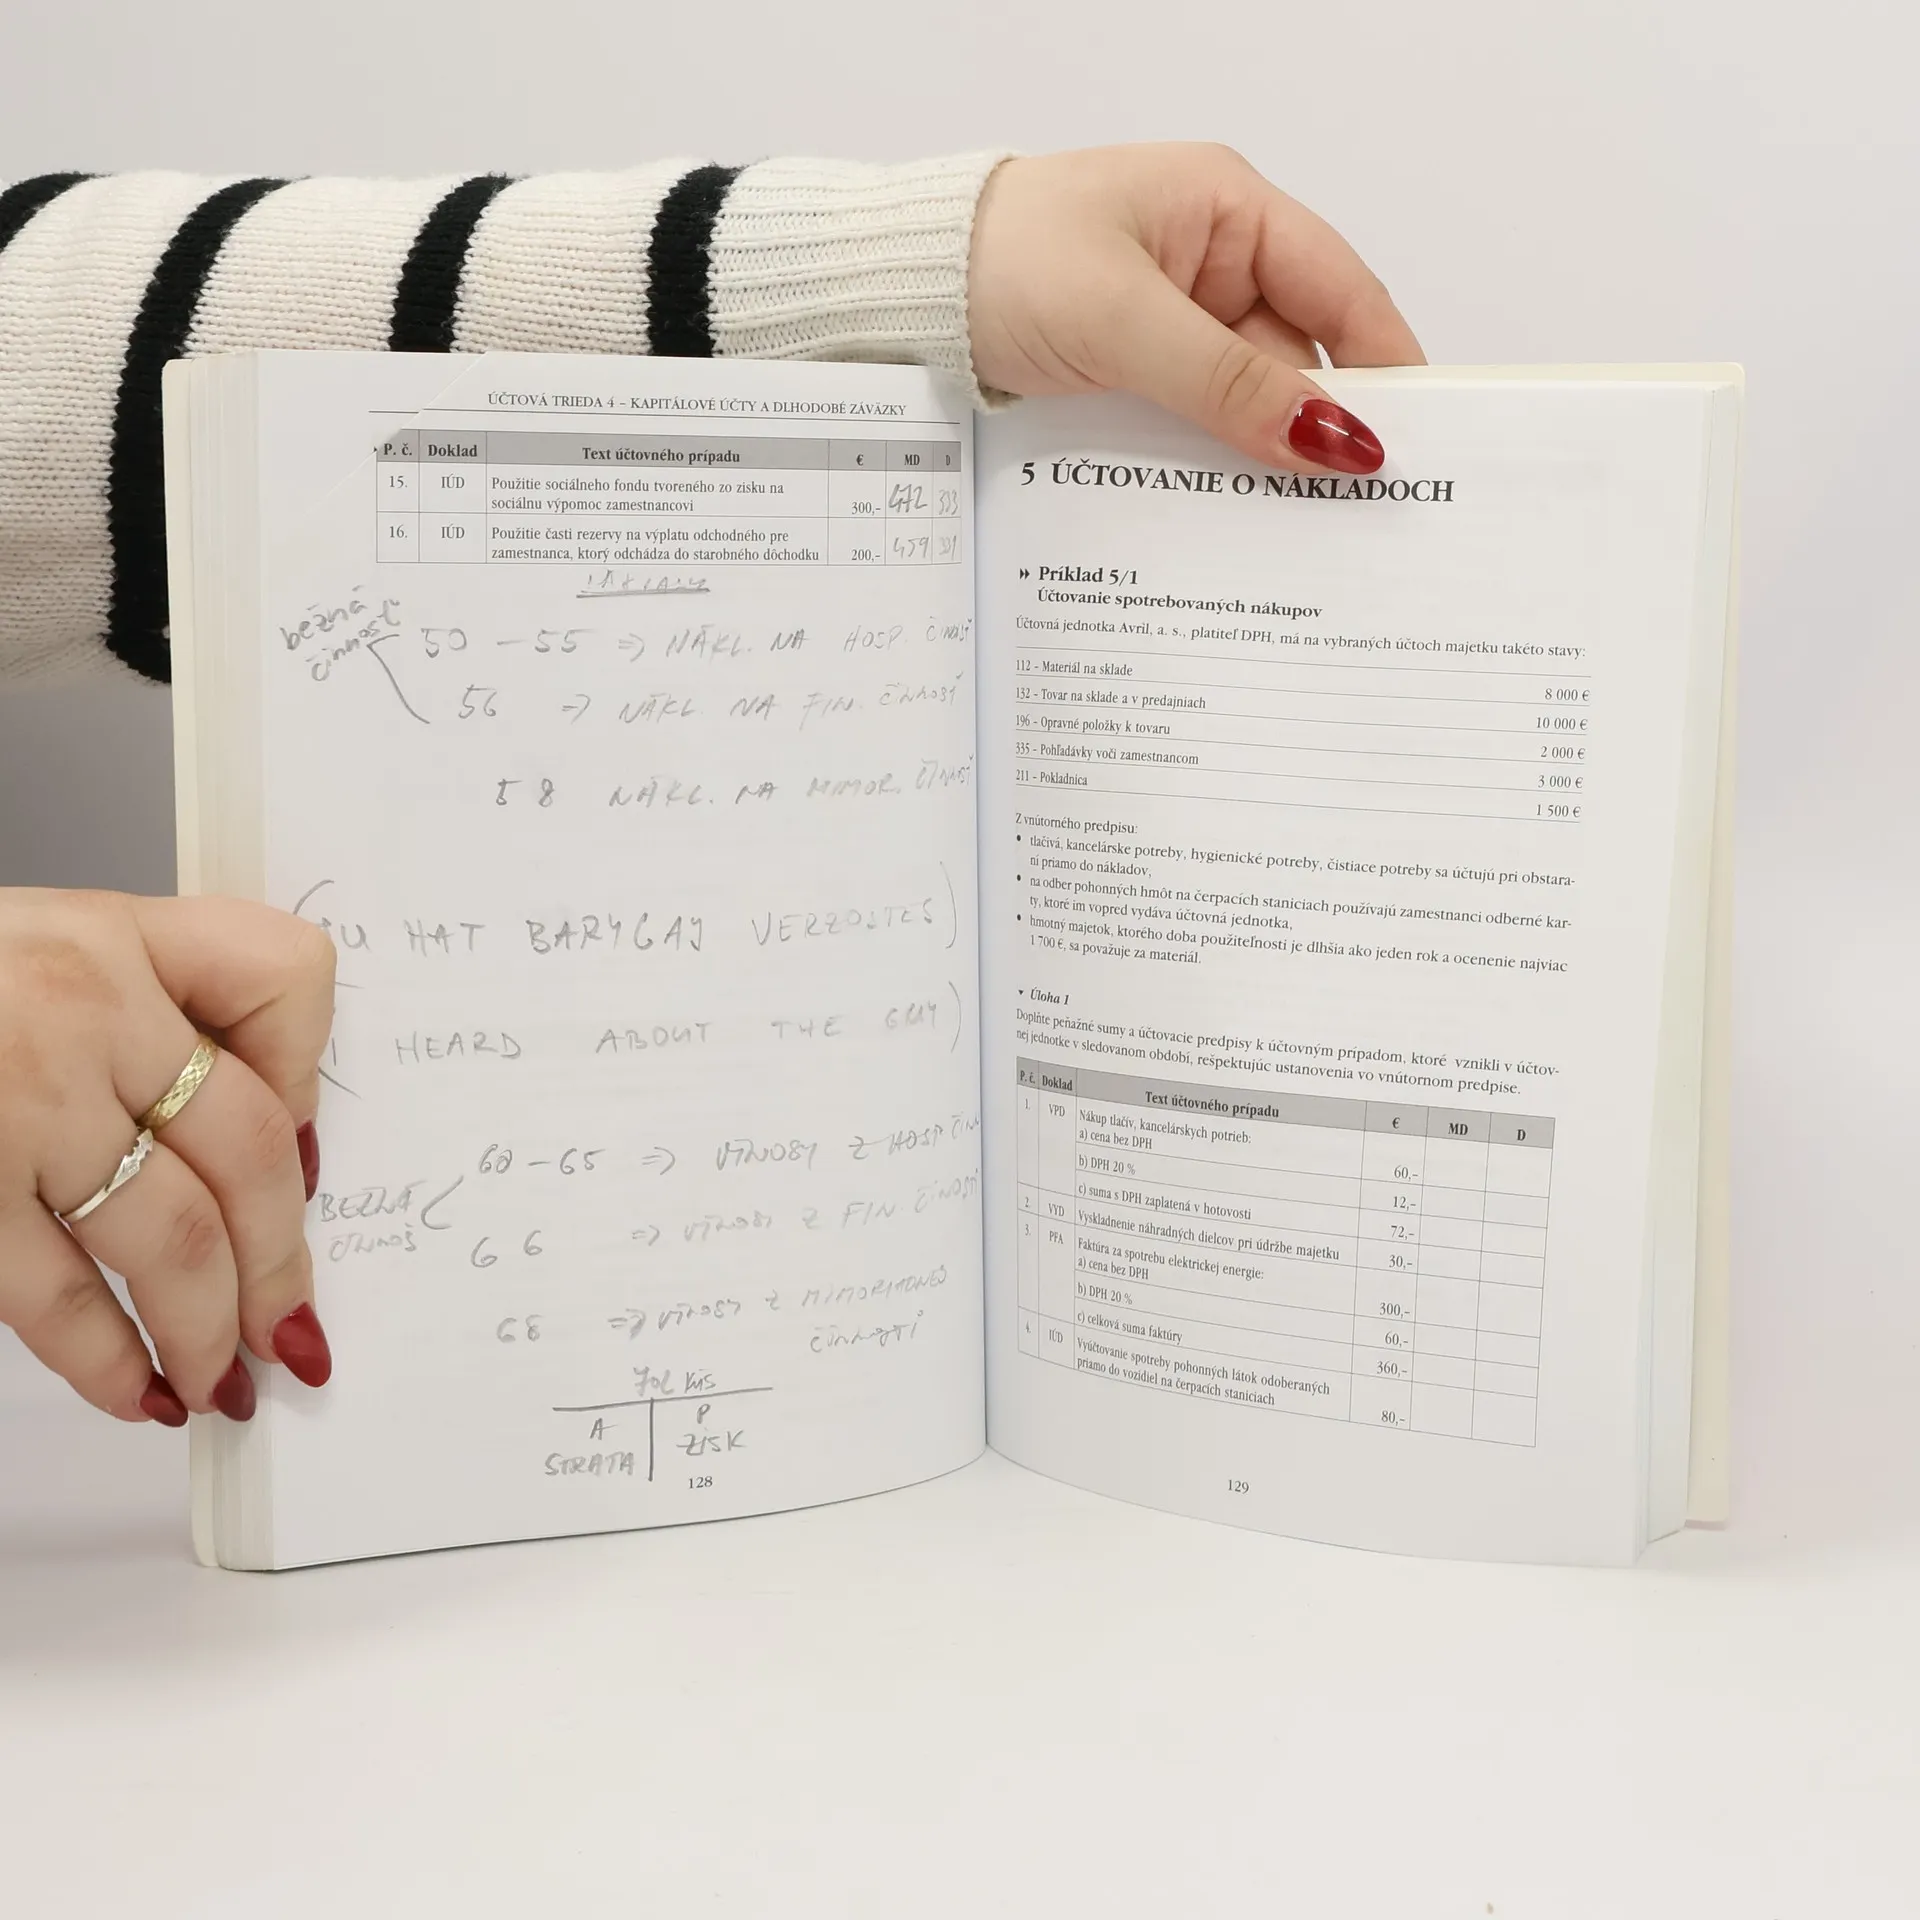 ÚČTOVÁ TRIEDA 4 – KAPITÁLOVÉ ÚČTY A DLHODOBÉ ZÁVÄZKY
P. č. Doklad Text účtovného prípadu € MD D
15. IÚD Použitie sociálneho fondu tvoreného zo zisku na
sociálnu výpomoc zamestnancovi 300,- 472 333
16. IÚD Použitie časti rezervy na výplatu odchodného pre
zamestnanca, ktorý odchádza do starobného dôchodku 200,- 459 331
bežná
činnosť
50 – 55 => NÁKL. NA HOSP. ČINNOSŤ
56 => NÁKL. NA FIN. ČINNOSŤ
58 NÁKL. NA MIMOR. ČINNOSŤ
HAT BARYGAJ
HEARD ABOUT THE GUY
60 – 65 => VÝNOSY Z HOSP ČINN
BEŽNÁ
66 => VÝNOSY Z FIN. ČINOSTI
68 => VÝNOSY Z MIMORIADNEJ
ČINNOSTI
A P
STRATA ZISK
128
5 ÚČTOVANIE O NÁKLADOCH
Príklad 5/1
Účtovanie spotrebovaných nákupov
Účtovná jednotka Avril, a. s., platiteľ DPH, má na vybraných účtoch majetku takéto stavy:
112 - Materiál na sklade 8 000 €
132 - Tovar na sklade a v predajniach 10 000 €
196 - Opravné položky k tovaru 2 000 €
335 - Pohľadávky voči zamestnancom 3 000 €
211 - Pokladnica 1 500 €
Z vnútorného predpisu:
• tlačivá, kancelárske potreby, hygienické potreby, čistiace potreby sa účtujú pri obstara-
ní priamo do nákladov,
• na odber pohonných hmôt na čerpacích staniciach používajú zamestnanci odberné kar-
ty, ktoré im vopred vydáva účtovná jednotka,
• hmotný majetok, ktorého doba použiteľnosti je dlhšia ako jeden rok a ocenenie najviac
1 700 €, sa považuje za materiál.
Úloha 1
Doplňte peňažné sumy a účtovacie predpisy k účtovným prípadom, ktoré vznikli v účtov-
nej jednotke v sledovanom období, rešpektujúc ustanovenia vo vnútornom predpise.
P. č. Doklad Text účtovného prípadu € MD D
1. VPD Nákup tlačív, kancelárskych potrieb:
a) cena bez DPH 60,-
b) DPH 20 % 12,-
c) suma s DPH zaplatená v hotovosti 72,-
2. VYD Vyskladnenie náhradných dielcov pri údržbe majetku 30,-
3. PFA Faktúra za spotrebu elektrickej energie:
a) cena bez DPH 300,-
b) DPH 20 % 60,-
c) celková suma faktúry 360,-
4. IÚD Vyúčtovanie spotreby pohonných látok odoberaných
priamo do vozidiel na čerpacích staniciach 80,-
129